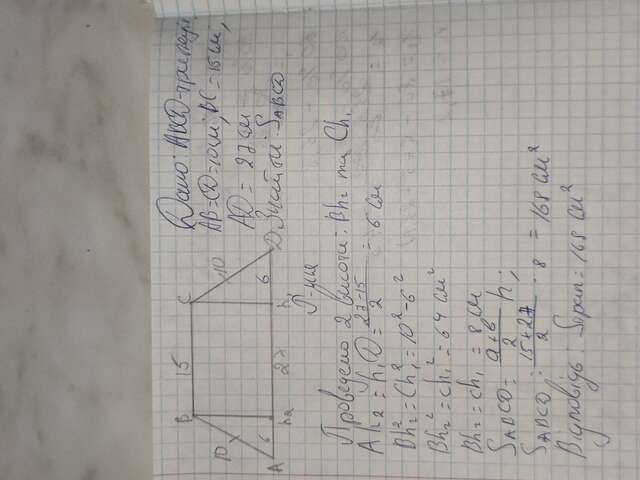 Дано: ABCD-трапеція
AB=CD=10см, BC=15см,
AD = 27см
Знайти: SABCD
B 15 C
10 10
A 6 h2 27 h1 6 D
Р-ння
Проведемо 2 висоти: Bh2 та Ch1
Ah2 = h1D = 27-15 / 2 = 6 см
Bh2² = Ch1² = 10² - 6²
Bh2² = Ch1² = 64 см²
Bh2 = Ch1 = 8 см
SABCD = a+b / 2 · h;
SABCD = 15+27 / 2 · 8 = 168 см²
Відповідь: Sтрап = 168 см²